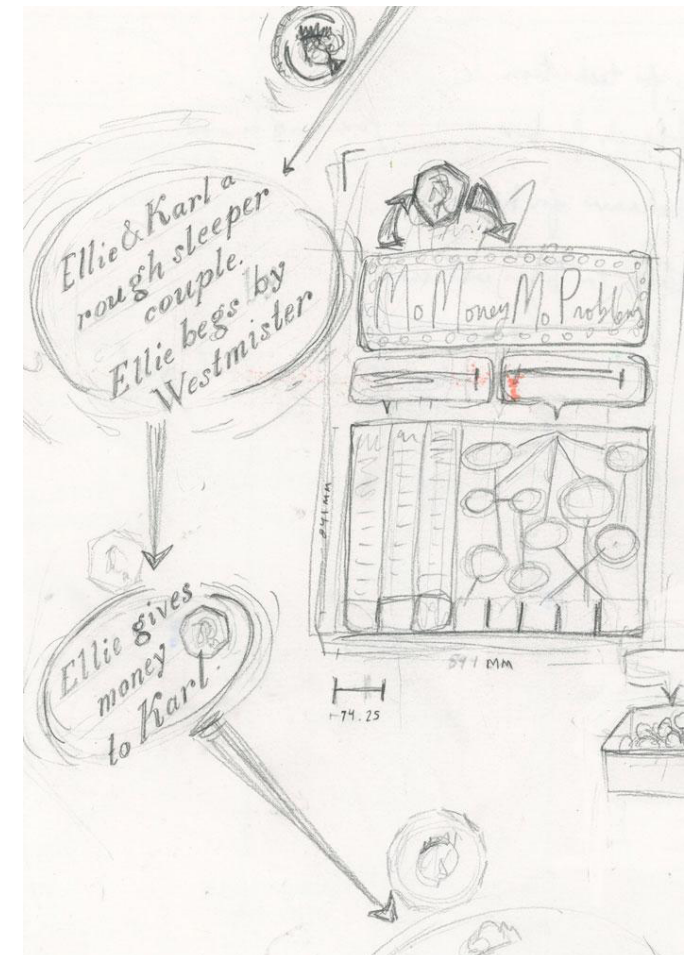 Ellie & Karl a
rough sleeper
couple.
Ellie begs by
Westmister
Mo Money Mo Problems
841 MM
Ellie gives
money
to Karl.
591 MM
74.25